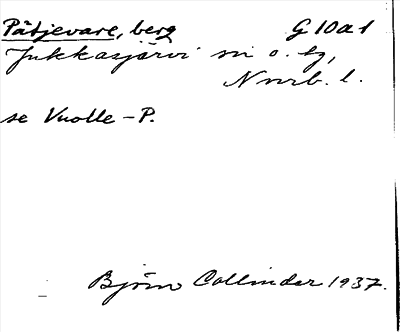 Påtjevare, berg G 10a1
Jukkasjärvi sn o. tg,
Nnrb. l.
se Vuolle-P.
Björn Collinder 1937.